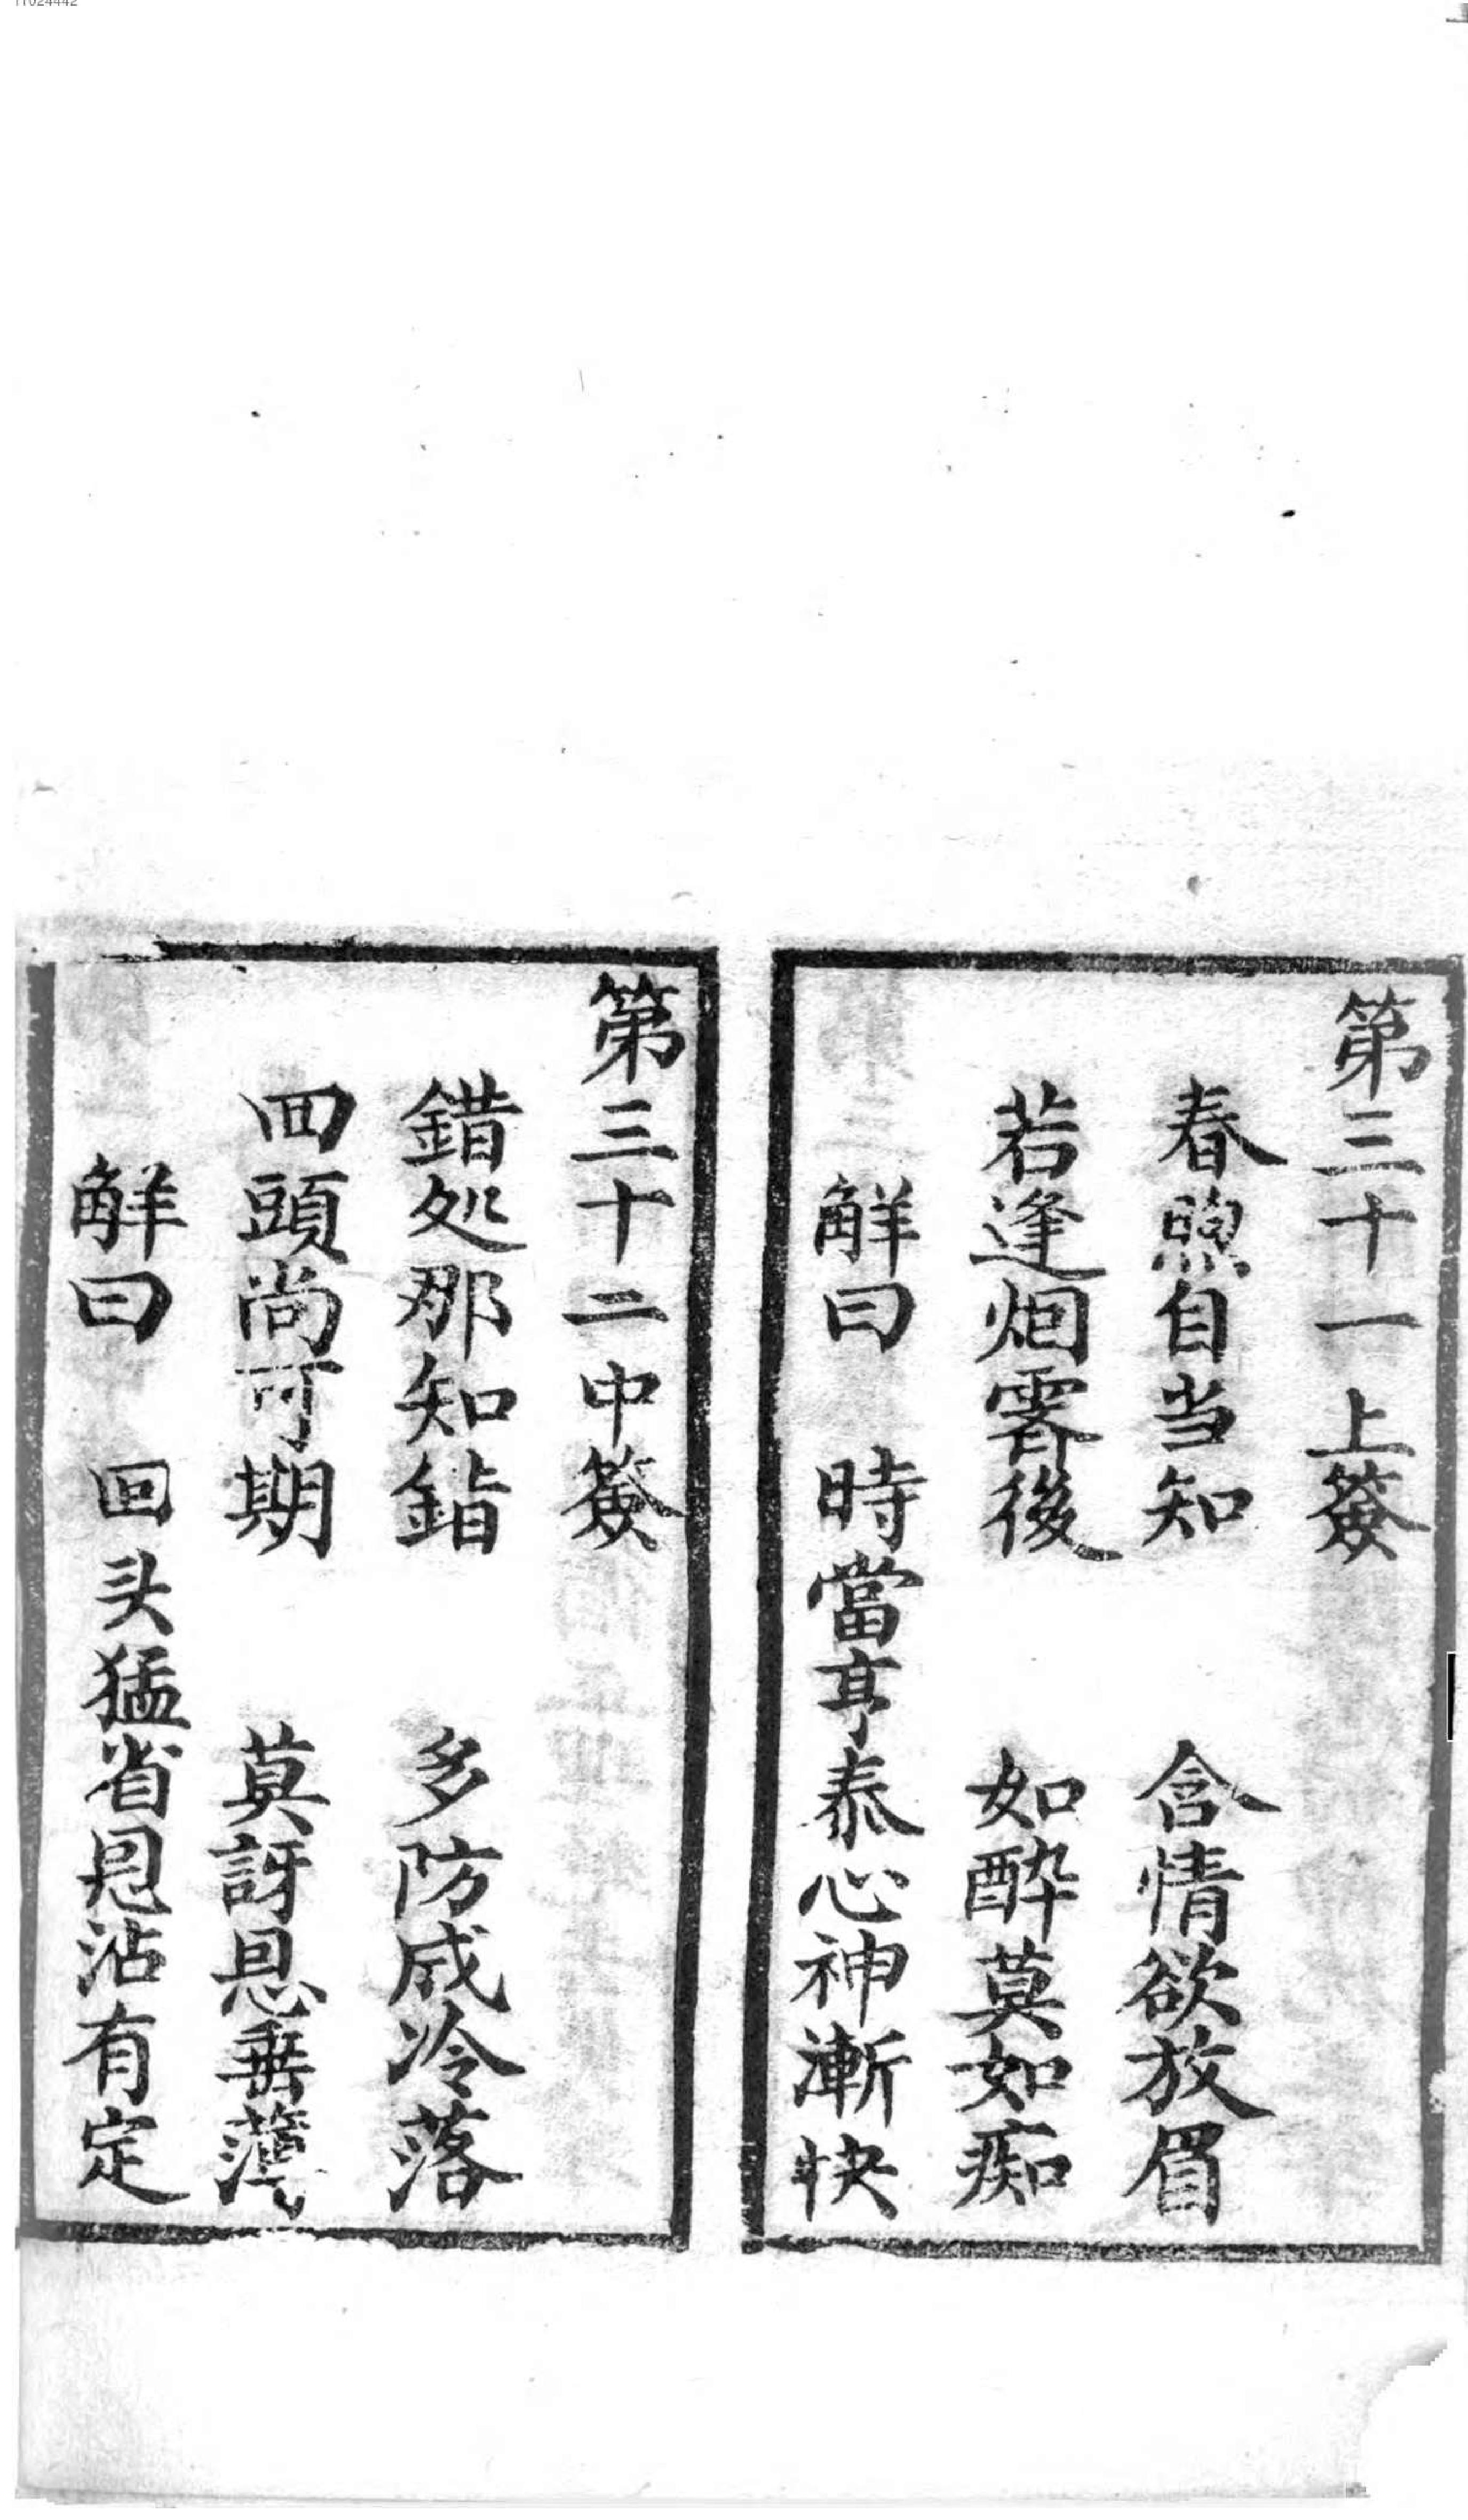 第三十一上簽
春煦自当知　含情欲放眉
若逢烟霽後　如醉莫如痴
觧曰　時當亨泰心神漸快
第三十二中簽
錯処那知錯　多防成冷落
回頭尚可期　莫訝恩垂薄
觧曰　回头猛省恩沾有定